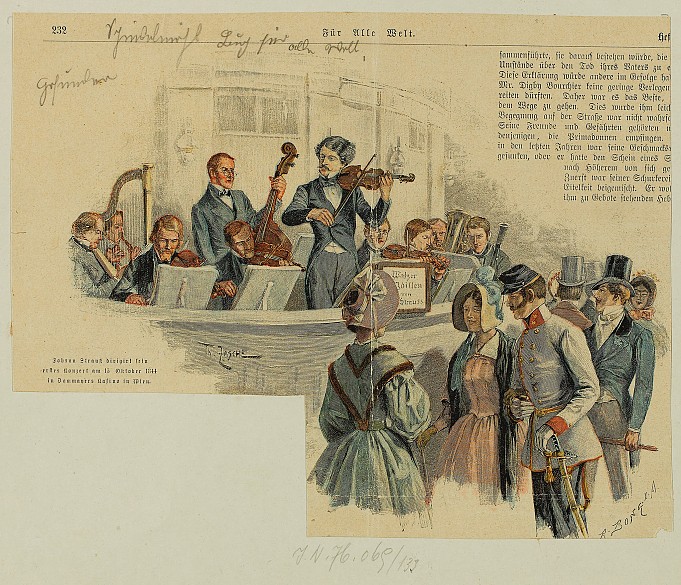 232
Für Alle Welt.
Heft
Buch für alle Welt
sammenführte, sie darauf bestehen würde, die
Umstände über den Tod ihres Vaters zu e
Diese Erklärung würde andere im Gefolge ha
Mr. Digby Bourchier keine geringe Verlegen
reiten dürften. Daher war es das Beste,
dem Wege zu gehen. Dies wurde ihm leich
Begegnung auf der Straße war nicht wahrsch
Seine Freunde und Gefährten gehörten n
denjenigen, die Primadonnen empfingen.
in den letzten Jahren war seine Geschmacks
gesunken, oder er hatte den Schein eines S
nach Höherem von sich ge
Zuerst war seiner Schurkerei
Eitelkeit beigemischt. Er wo
ihm zu Gebote stehenden Heb
Walzer
Idyllen
von
Strauß
Th. Zasche
Johann Strauß dirigirt sein
erstes Konzert am 15. Oktober 1844
in Dommayers Kasino in Wien.
J.N. 76.069/133